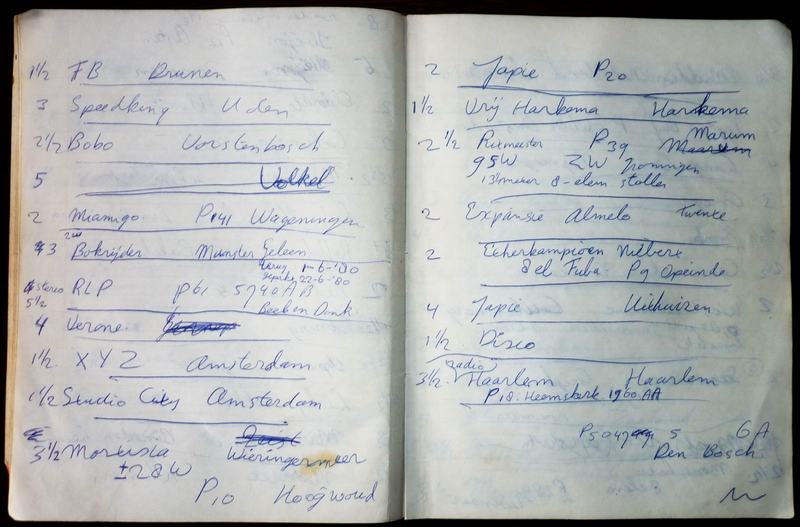 1½ FB Drunen
3 Speedking Uden
2½ Bobo Vorstenbosch
5 Volkel
2 Miamigo P141 Wageningen
2W
3 Bokrijder Munster Geleen
1-6-'80
22-6-'80
stereo RLP p61 5740 AB
5½ Beek en Donk
4 Verone
1½ XYZ Amsterdam
1½ Studio City Amsterdam
3½ Wieringermeer
±28W
P10 Hoogwoud
2 Japie P20
1½ Vrij Harkema Harkema
2½ Ritmeester P39 Marum
95W ZW Groningen
13½ meter 8-elem stolle
2 Expansie Almelo Twente
2 Eiherkampioen Nuberx
8 el Fuba P9 Opeinde
4 Japie Uithuizen
1½ Disco
Radio
3½ Haarlem Haarlem
P18 Heemskerk 1960 AA
5 GA
Den Bosch